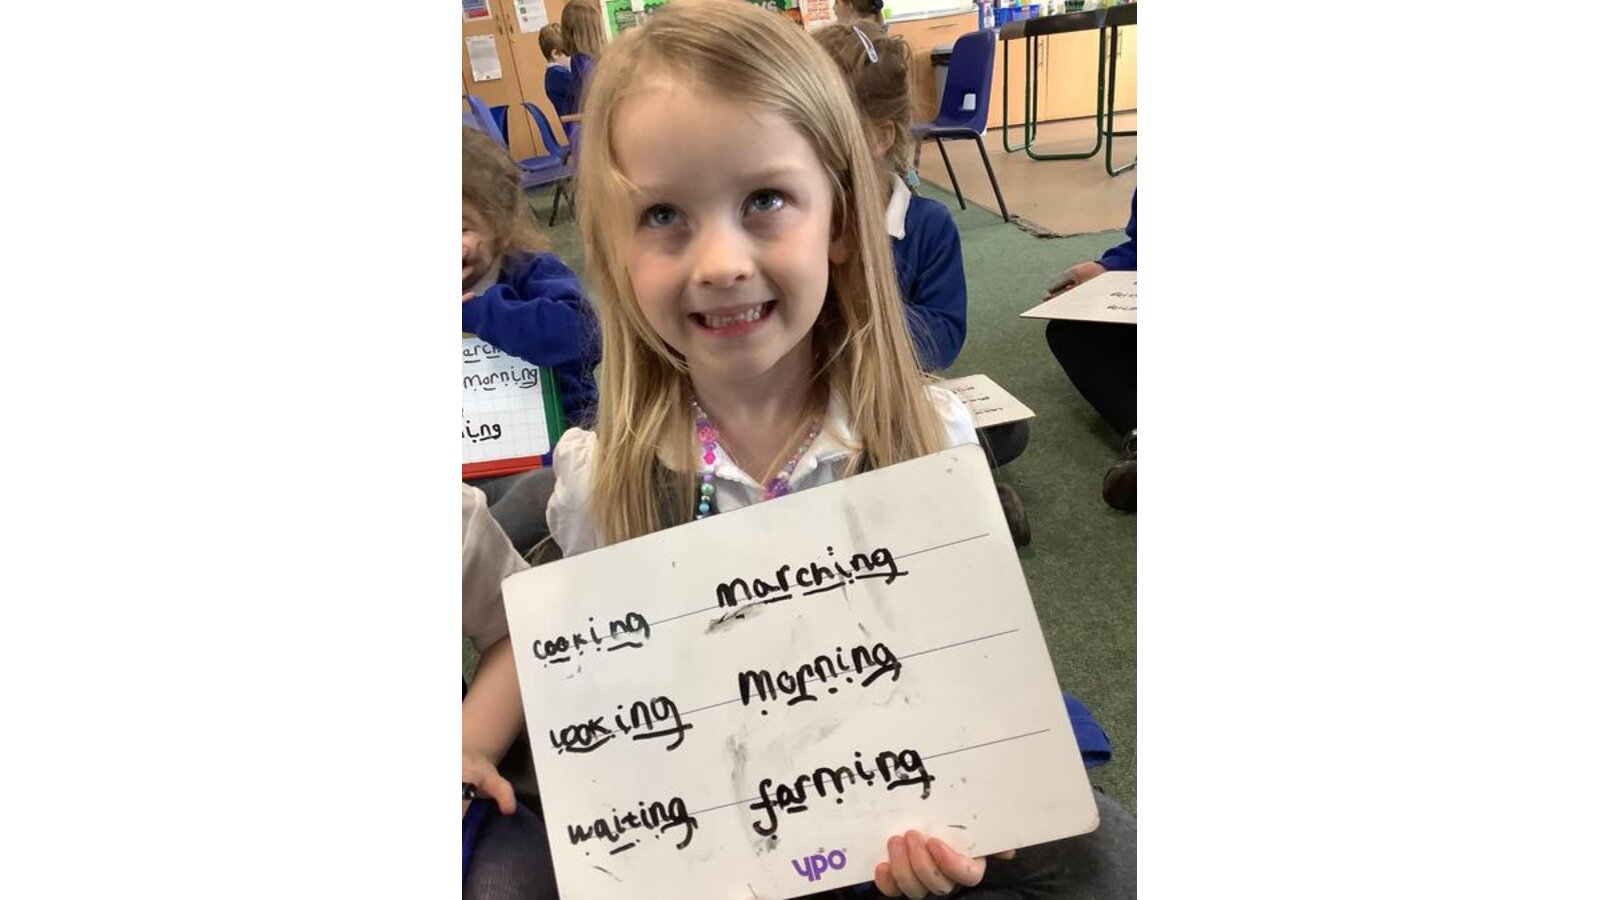 cooking marching
looking Morning
waiting farming
ypo
Morning
ing